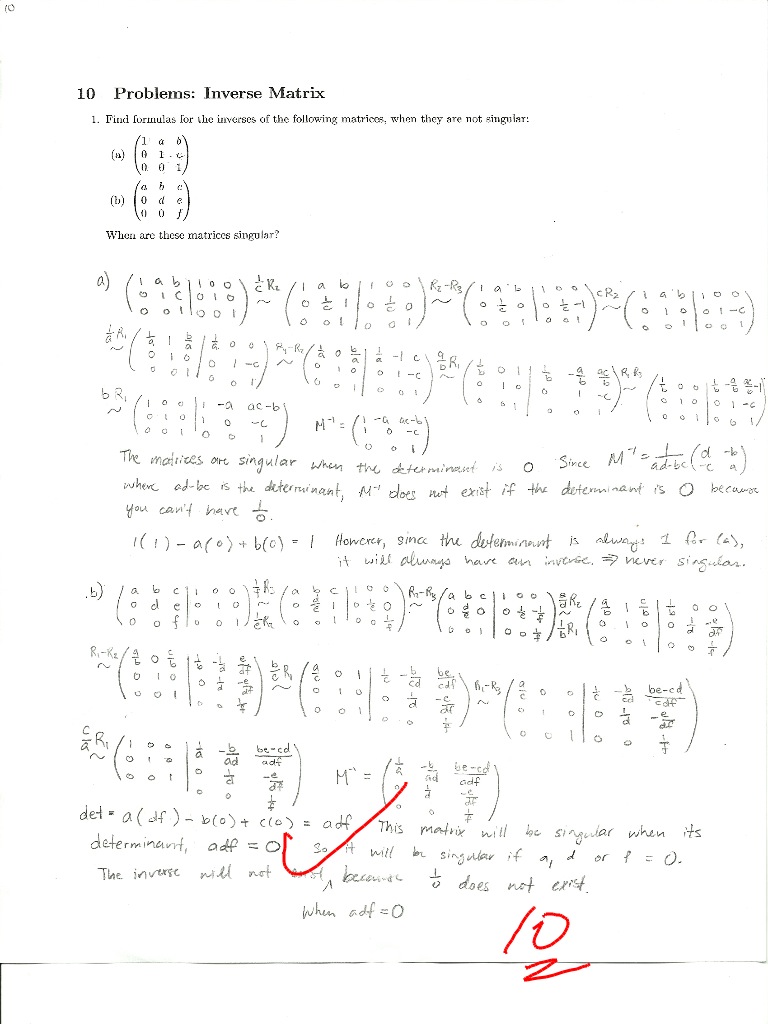 10
10 Problems: Inverse Matrix
1. Find formulas for the inverses of the following matrices, when they are not singular:
(a) (1 a b
0 1 c
0 0 1)
(b) (a b c
0 d e
0 0 f)
When are these matrices singular?
a) (1 a b | 1 0 0; 0 1 c | 0 1 0; 0 0 1 | 0 0 1) 1/c R2 ~ (1 a b | 1 0 0; 0 1/c 1 | 0 1/c 0; 0 0 1 | 0 0 1) R2-R3 ~ (1 a b | 1 0 0; 0 1/c 0 | 0 1/c -1; 0 0 1 | 0 0 1) cR2 ~ (1 a b | 1 0 0; 0 1 0 | 0 1 -c; 0 0 1 | 0 0 1)
1/a R1 ~ (1/a 1 b/a | 1/a 0 0; 0 1 0 | 0 1 -c; 0 0 1 | 0 0 1) R1-R2 ~ (1/a 0 b/a | 1/a -1 c; 0 1 0 | 0 1 -c; 0 0 1 | 0 0 1) a/b R1 ~ (1/b 0 1 | 1/b -a/b ac/b; 0 1 0 | 0 1 -c; 0 0 1 | 0 0 1) R1-R3 ~ (1/b 0 0 | 1/b -a/b ac/b-1; 0 1 0 | 0 1 -c; 0 0 1 | 0 0 1)
bR1 ~ (1 0 0 | 1 -a ac-b; 0 1 0 | 0 1 -c; 0 0 1 | 0 0 1) M⁻¹ = (1 -a ac-b; 1 0 -c; 0 0 1)
The matrices are singular when the determinant is 0 Since M⁻¹ = 1/ad-bc (d -b; -c a)
where ad-bc is the determinant, M⁻¹ does not exist if the determinant is 0 because
you can't have 1/0.
1(1) - a(0) + b(0) = 1 However, since the determinant is always 1 for (a),
it will always have an inverse. ⇒ never singular.
b) (a b c | 1 0 0; 0 d e | 0 1 0; 0 0 f | 0 0 1) 1/f R3 ~ 1/e R2 (a b c | 1 0 0; 0 d/e 1 | 0 1/e 0; 0 0 1 | 0 0 1/f) R2-R3 ~ (a b c | 1 0 0; 0 d/e 0 | 0 1/e -1/f; 0 0 1 | 0 0 1/f) e/d R2 ~ 1/b R1 (a/b 1 c/b | 1/b 0 0; 0 1 0 | 0 1/d -e/df; 0 0 1 | 0 0 1/f)
R1-R2 ~ (a/b 0 c/b | 1/b -1/d e/df; 0 1 0 | 0 1/d -e/df; 0 0 1 | 0 0 1/f) b/c R1 ~ (a/c 0 1 | 1/c -b/cd be/cdf; 0 1 0 | 0 1/d -e/df; 0 0 1 | 0 0 1/f) R1-R3 ~ (a/c 0 0 | 1/c -b/cd be-cd/cdf; 0 1 0 | 0 1/d -e/df; 0 0 1 | 0 0 1/f)
c/a R1 ~ (1 0 0 | 1/a -b/ad be-cd/adf; 0 1 0 | 0 1/d -e/df; 0 0 1 | 0 0 1/f) M⁻¹ = (1/a -b/ad be-cd/adf; 0 1/d -e/df; 0 0 1/f)
det = a(df) - b(0) + c(0) = adf This matrix will be singular when its
determinant, adf = 0 So it will be singular if a, d or f = 0.
The inverse will not exist ^ because 1/0 does not exist.
when adf = 0
10